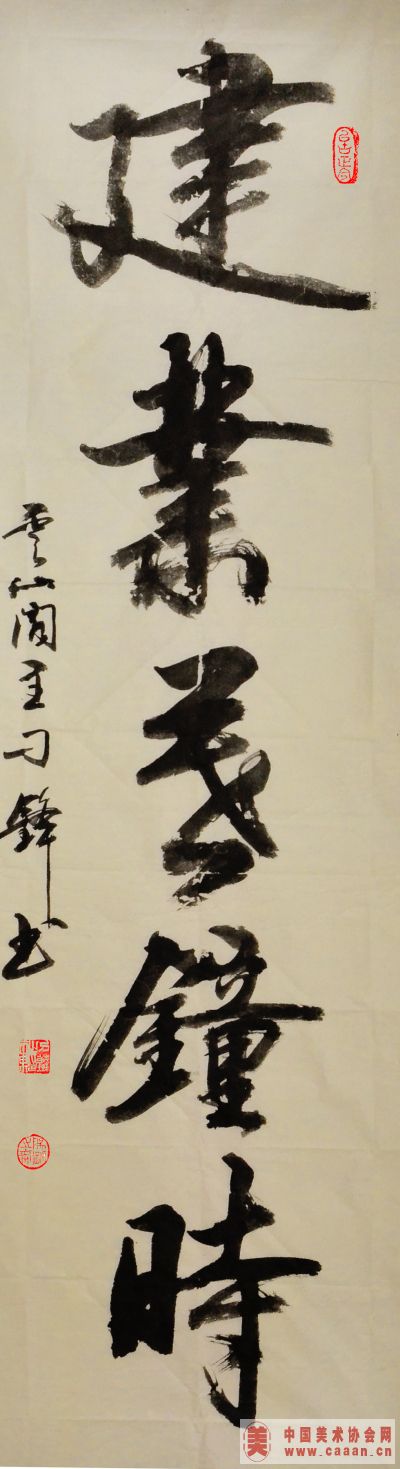 建業暮鐘時
雲山閣主刁鋒書
美
中国美术协会网
www.caaan.cn